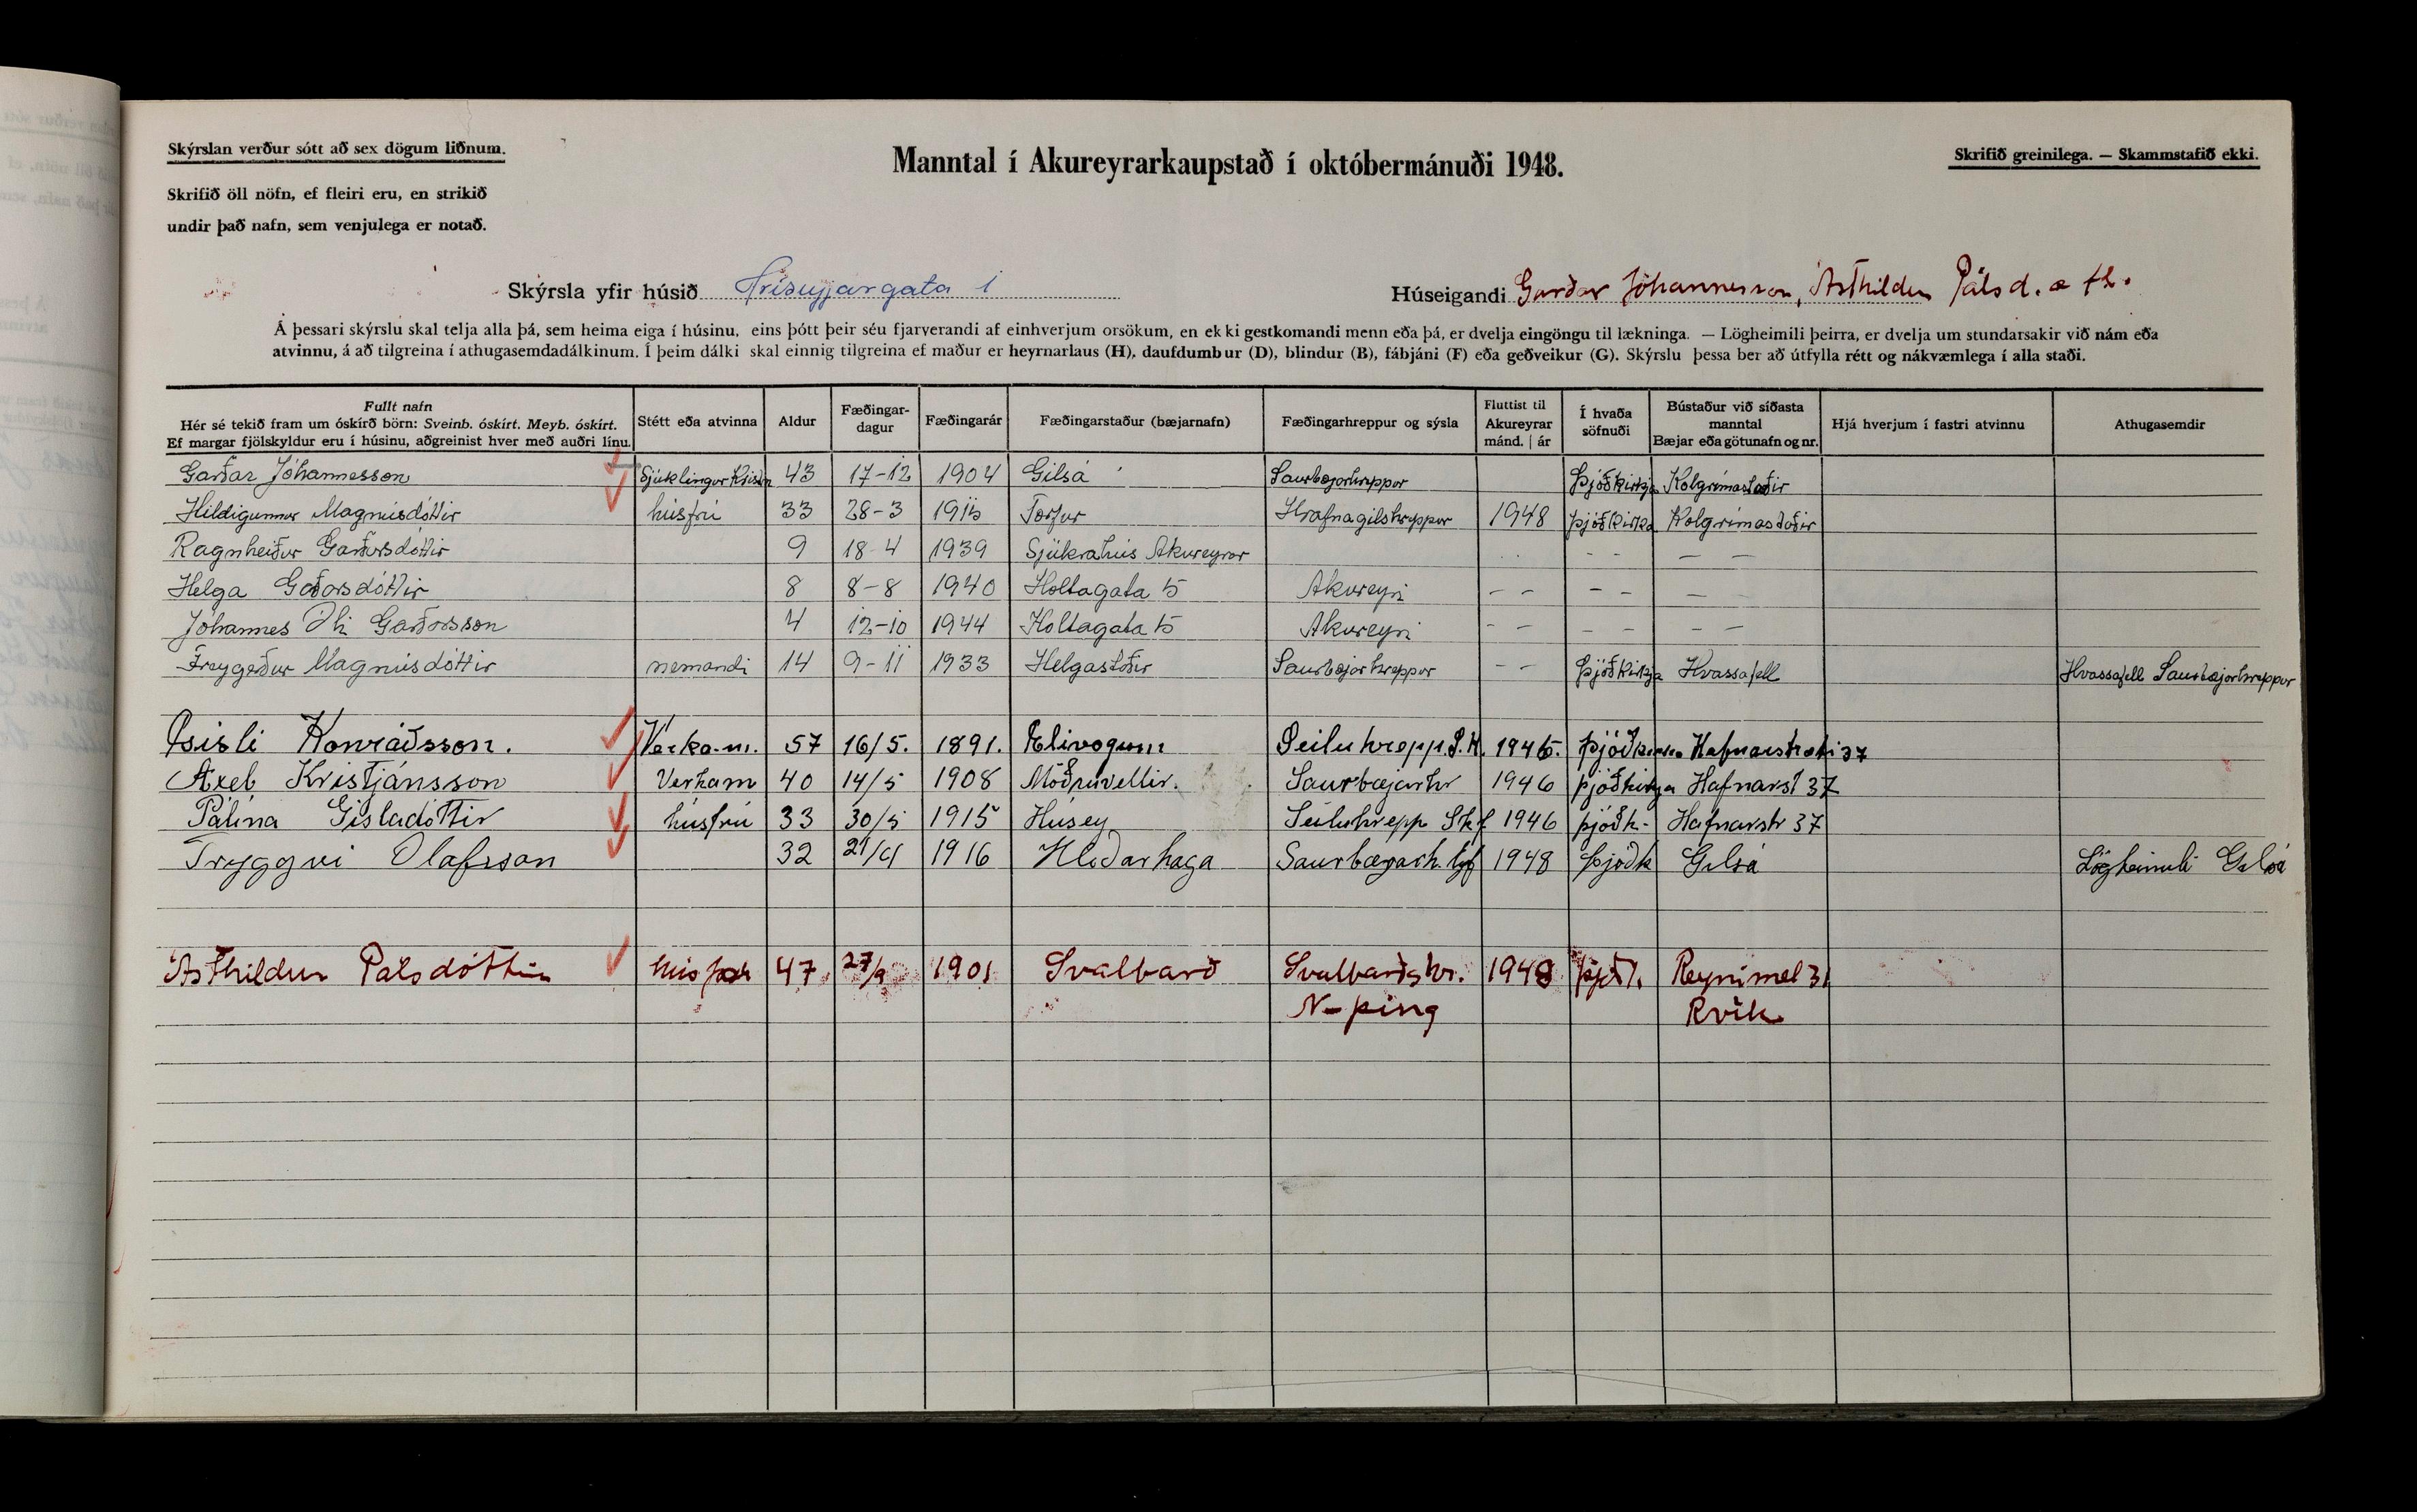 Skýrslan verður sótt að sex dögum liðnum.
Manntal í Akureyrarkaupstað í októbermánuði 1948.
Skrifið greinilega. — Skammstafið ekki.
Skrifið öll nöfn, ef fleiri eru, en strikið
undir það nafn, sem venjulega er notað.
Skýrsla yfir húsið Hríseyjargata 1
Húseigandi Garðar Jóhannesson, Ásthildur Pálsd. æ fl.
Á þessari skýrslu skal telja alla þá, sem heima eiga í húsinu, eins þótt þeir séu fjarverandi af einhverjum orsökum, en ekki gestkomandi menn eða þá, er dvelja eingöngu til lækninga. — Lögheimili þeirra, er dvelja um stundarsakir við nám eða
atvinnu, á að tilgreina í athugasemdadálkinum. Í þeim dálki skal einnig tilgreina ef maður er heyrnarlaus (H), daufdumbur (D), blindur (B), fábjáni (F) eða geðveikur (G). Skýrslu þessa ber að útfylla rétt og nákvæmlega í alla staði.
Fullt nafn
Hér sé tekið fram um óskírð börn: Sveinb. óskírt. Meyb. óskírt.
Ef margar fjölskyldur eru í húsinu, aðgreinist hver með auðri línu.
Stétt eða atvinna
Aldur
Fæðingar-
dagur
Fæðingarár
Fæðingarstaður (bæjarnafn)
Fæðingarhreppur og sýsla
Fluttist til
Akureyrar
mánd. | ár
Í hvaða
söfnuði
Bústaður við síðasta
manntal
Bæjar eða götunafn og nr.
Hjá hverjum í fastri atvinnu
Athugasemdir
Garðar Jóhannesson Sjúklingur 43 17-12 1904 Gilsá Saurbæjarhreppur Þjóðkirkja Kolgrímastaðir
Hildigunnur Magnúsdóttir húsfrú 33 28-3 1915 Torfur Hrafnagilshreppur 1948 Þjóðkirkja Kolgrímastaðir
Ragnheiður Garðarsdóttir 9 18-4 1939 Sjúkrahús Akureyrar - - — —
Helga Garðarsdóttir 8 8-8 1940 Holtagata 5 Akureyri - - - - — —
Jóhannes Óli Garðarsson 4 12-10 1944 Holtagata 5 Akureyri - - - - — —
Freygerður Magnúsdóttir nemandi 14 9-11 1933 Helgastaðir Saurbæjarhreppur - - Þjóðkirkja Hvassafell Hvassafell Saurbæjarhreppur
Gísli Konráðsson. Verka.m. 57 16/5. 1891. Elivogum Seiluhrepp. S.k. 1946. Hafnarstræti 37
Axel Kristjánsson Verkam 40 14/5 1908 Möðruvellir. Saurbæjarhr 1946 þjóðkirkja Hafnarst 37
Pálína Gísladóttir húsfrú 33 30/5 1915 Húsey Seiluhrepp Skf 1946 þjóðk- Hafnarstr 37
Tryggvi Olafsson 32 21/4 1916 Hlíðarhaga Saurbæjarh. Eyf 1948 Þjóðk Gilsá Lögheimili Gilsá
Ásthildur Pálsdóttir 47 27/9 1901 Svalbarð Svalbarðshr. 1948 þjóðk. Reynimel 31
N-þing Rvík